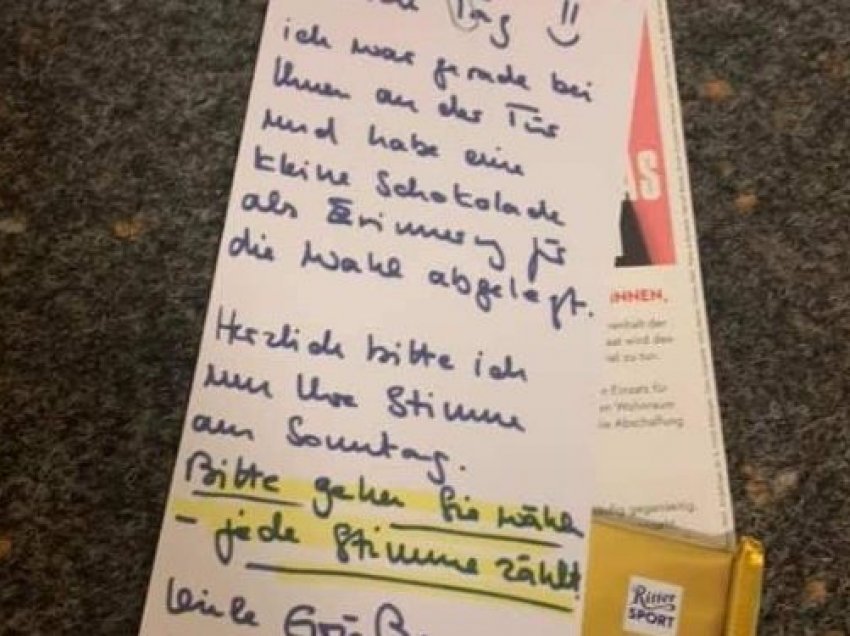 Tag !!
ich war gerade bei
Ihnen an der Tür
und habe eine
kleine Schokolade
als Erinnerung für
die Wahl abgelegt.
Herzlich bitte ich
um Ihre Stimme
am Sonntag.
Bitte gehen Sie wählen
- jede Stimme zählt!
Liebe Grüße
AS
INNEN,
enhalt der
aat wird den
el zu tun.
Einsatz für
Wohnraum
ie Abschaffung
gegenseitig.
Ritter
SPORT